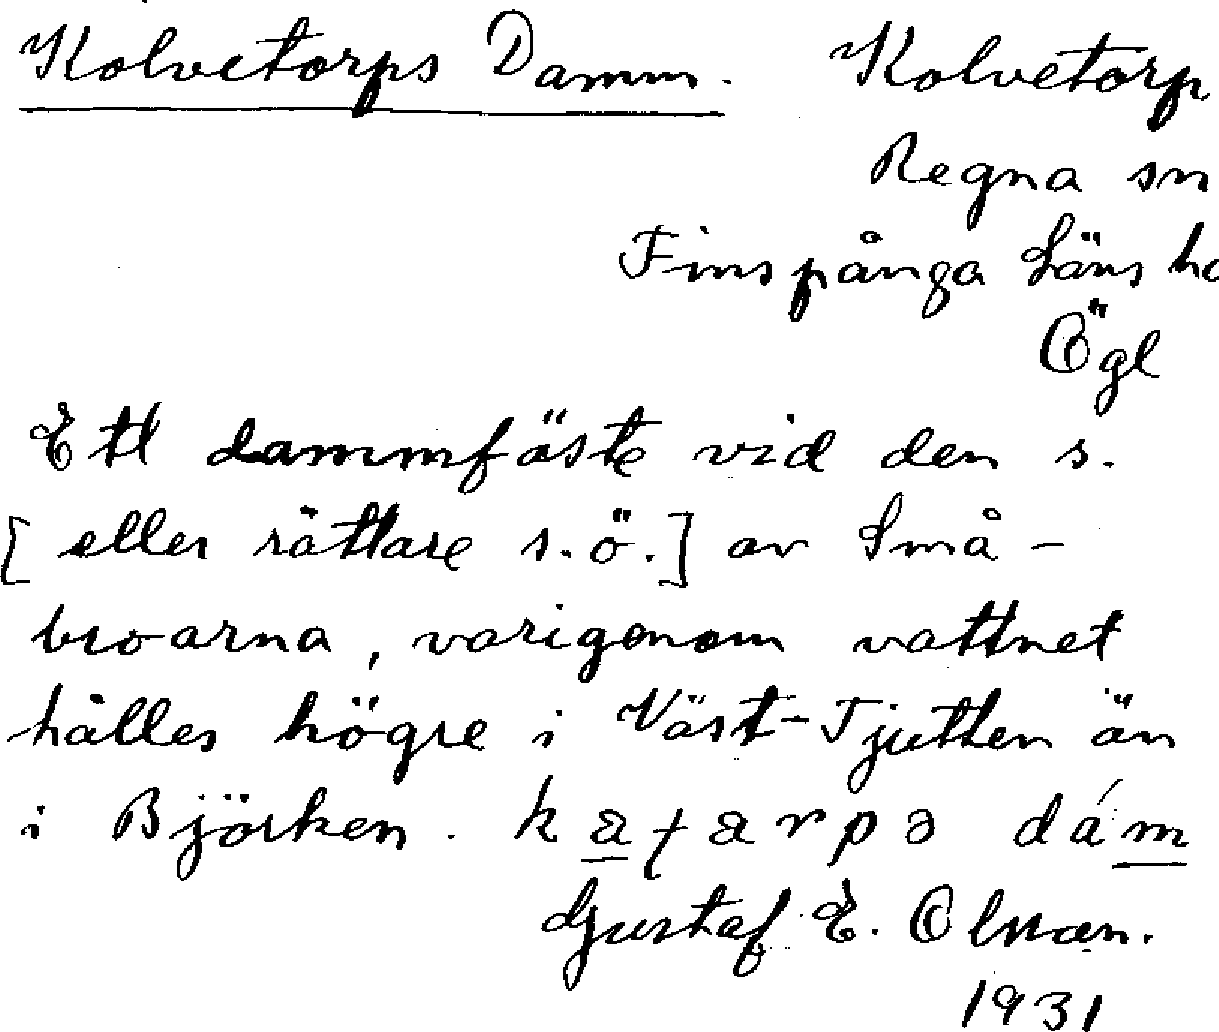 Kolvetorps Damm. Kolvetorp
Regna sn
Finspånga Läns hd
Ögl
Ett dammfäste vid den s.
[eller rättare s.ö.] av Små-
broarna, varigenom vattnet
hålles högre i Väst-Tjutten än
i Björken.
Gustaf E. Olsson.
1931